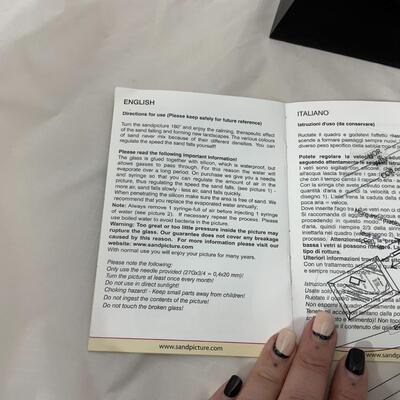 ENGLISH
Directions for use (Please keep safely for future reference)
Turn the sandpicture 180° and enjoy the calming, therapeutic effect
of the sand falling and forming new landscapes. The various colours
of sand never mix because of their different densities. You can
regulate the speed the sand falls yourself!
Please read the following important information!
The glass is glued together with silicon, which is waterproof, but
allows gasses to pass through. For this reason the water will
evaporate over a long period. On purchase we give you a needle
and syringe so that you can regulate the amount of air in the
picture, thus regulating the speed the sand falls. (see picture 1) -
more air, sand falls slowly, less air, sand falls quickly.
When penetrating the silicon make sure the area is free of sand. We
recommend that you replace the evaporated water annually.
Note: Always remove 1 syringe-full of air before injecting 1 syringe
of water (see picture 2). If necessary repeat the process. Please
use boiled water to avoid bacteria in the picture.
Warning: Too great or too little pressure inside the picture may
rupture the glass. Our guarantee does not cover any breakage
caused by this reason. For more information please visit our
website: www.sandpicture.com.
With normal use you will enjoy your picture for many years.
Please note the following:
Only use the needle provided (27Gx3/4 = 0,4x20 mm)!
Turn the picture at least once every month!
Do not use in direct sunlight!
Choking hazard! - Keep small parts away from children!
Do not ingest the contents of the picture!
Do not touch the broken glass!
www.sandpicture.com
ITALIANO
Istruzioni d'uso (da conservare)
Ruotate il quadro e godetevi l'effetto
scende a formare paesaggi sempre nuovi
diverso peso specifico della sabbia
Potete regolare la velocità
seguendo attentamente le
I vetri sono sigillati con
all'acqua lascia traspirare i gas
che con il tempo
Con la siringa che avete
quantità d'aria e quindi la velocità
disegno 1).
poca aria = veloce.
Dove inserite l'ago tra i due vetri non ci
Si raccomanda di aggiungere
procedendo in questo modo:
d'aria, quindi riempire 2/3 della
iniettarla nel quadro
processo. Attenzione:
bassa i vetri si possono
tipo di rottura.
Ulteriori informazioni
Con un trattamento
e sempre nuovi
Usate solo
Ruotate il quadro
Non esponete il quadro
www.sandpi